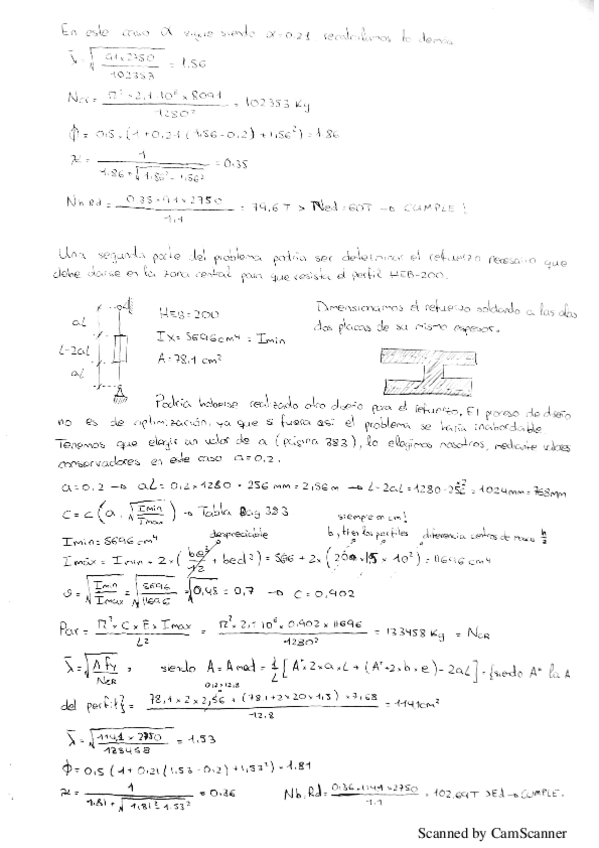 En este caso α sigue siendo α=0.21 recalculamos lo demás
λ̄ = √(91×2750 / 102383) = 1.56
Ncr = π²×2,1·10⁶×8091 / 1280² = 102383 Kg
ϕ = 0,5·(1+0,21(1,56-0,2)+1,56²) = 1.86
χ = 1 / (1.86+√(1.86²-1.56²)) = 0.35
Nb,Rd = 0.35×91×2750 / 1.1 = 79,6 T > Ned=60T → CUMPLE!
Una segunda parte del problema podría ser determinar el refuerzo necesario que
debe darse en la zona central para que resista el perfil HEB-200.
aL
L-2aL
aL
HEB-200
Ix = 5696cm⁴ = Imin
A = 78.1 cm²
Dimensionamos el refuerzo soldando a las alas
dos placas de su mismo espesor.
Podría haberse realizado otro diseño para el refuerzo. El proceso de diseño
no es de optimización, ya que si fuera así el problema se haría inabordable
Tenemos que elegir un valor de a (página 383), lo elegimos nosotros, mediante valores
conservadores en este caso a=0,2.
a=0.2 → aL = 0,2×1280 = 256 mm = 2,56m → L-2aL = 1280-2·256 = 1024mm = 768mm
C = c (a, √(Imin/Imax)) → Tabla pag 393
siempre en cm!
Imin = 5696 cm⁴
despreciable
b, t los perfiles
diferencia centros de masa
Imáx = Imin + 2×(be³/12 + bed²) = 5696 + 2×(20×1,5×10²) = 11696 cm⁴
s = √(Imin/Imax) = √(5696/11696) = √0,48 = 0,7 → C = 0,902
Pcr = π²×C×E×Imax / L² = π²×2,1·10⁶×0,902×11696 / 1280² = 133458 Kg = Ncr
λ̄ = √(A fy / Ncr), siendo A = Amed = 1/L [A*×2×a×L + (A*+2×b×e)-2aL] - {siendo A* la A
del perfil} = 78,1×2×2,56 + (78,1+2×20×1,5)×7,68 / 12.8 = 114,1cm²
0,2×12.8
λ̄ = √(114,1×2750 / 133458) = 1.53
ϕ = 0,5 (1+0,21(1,53-0,2)+1,53²) = 1.81
χ = 1 / (1.81+√(1.81²-1.53²)) = 0.36
Nb,Rd = 0.36×114,1×2750 / 1.1 = 102.69T > Ed → CUMPLE.
Scanned by CamScanner